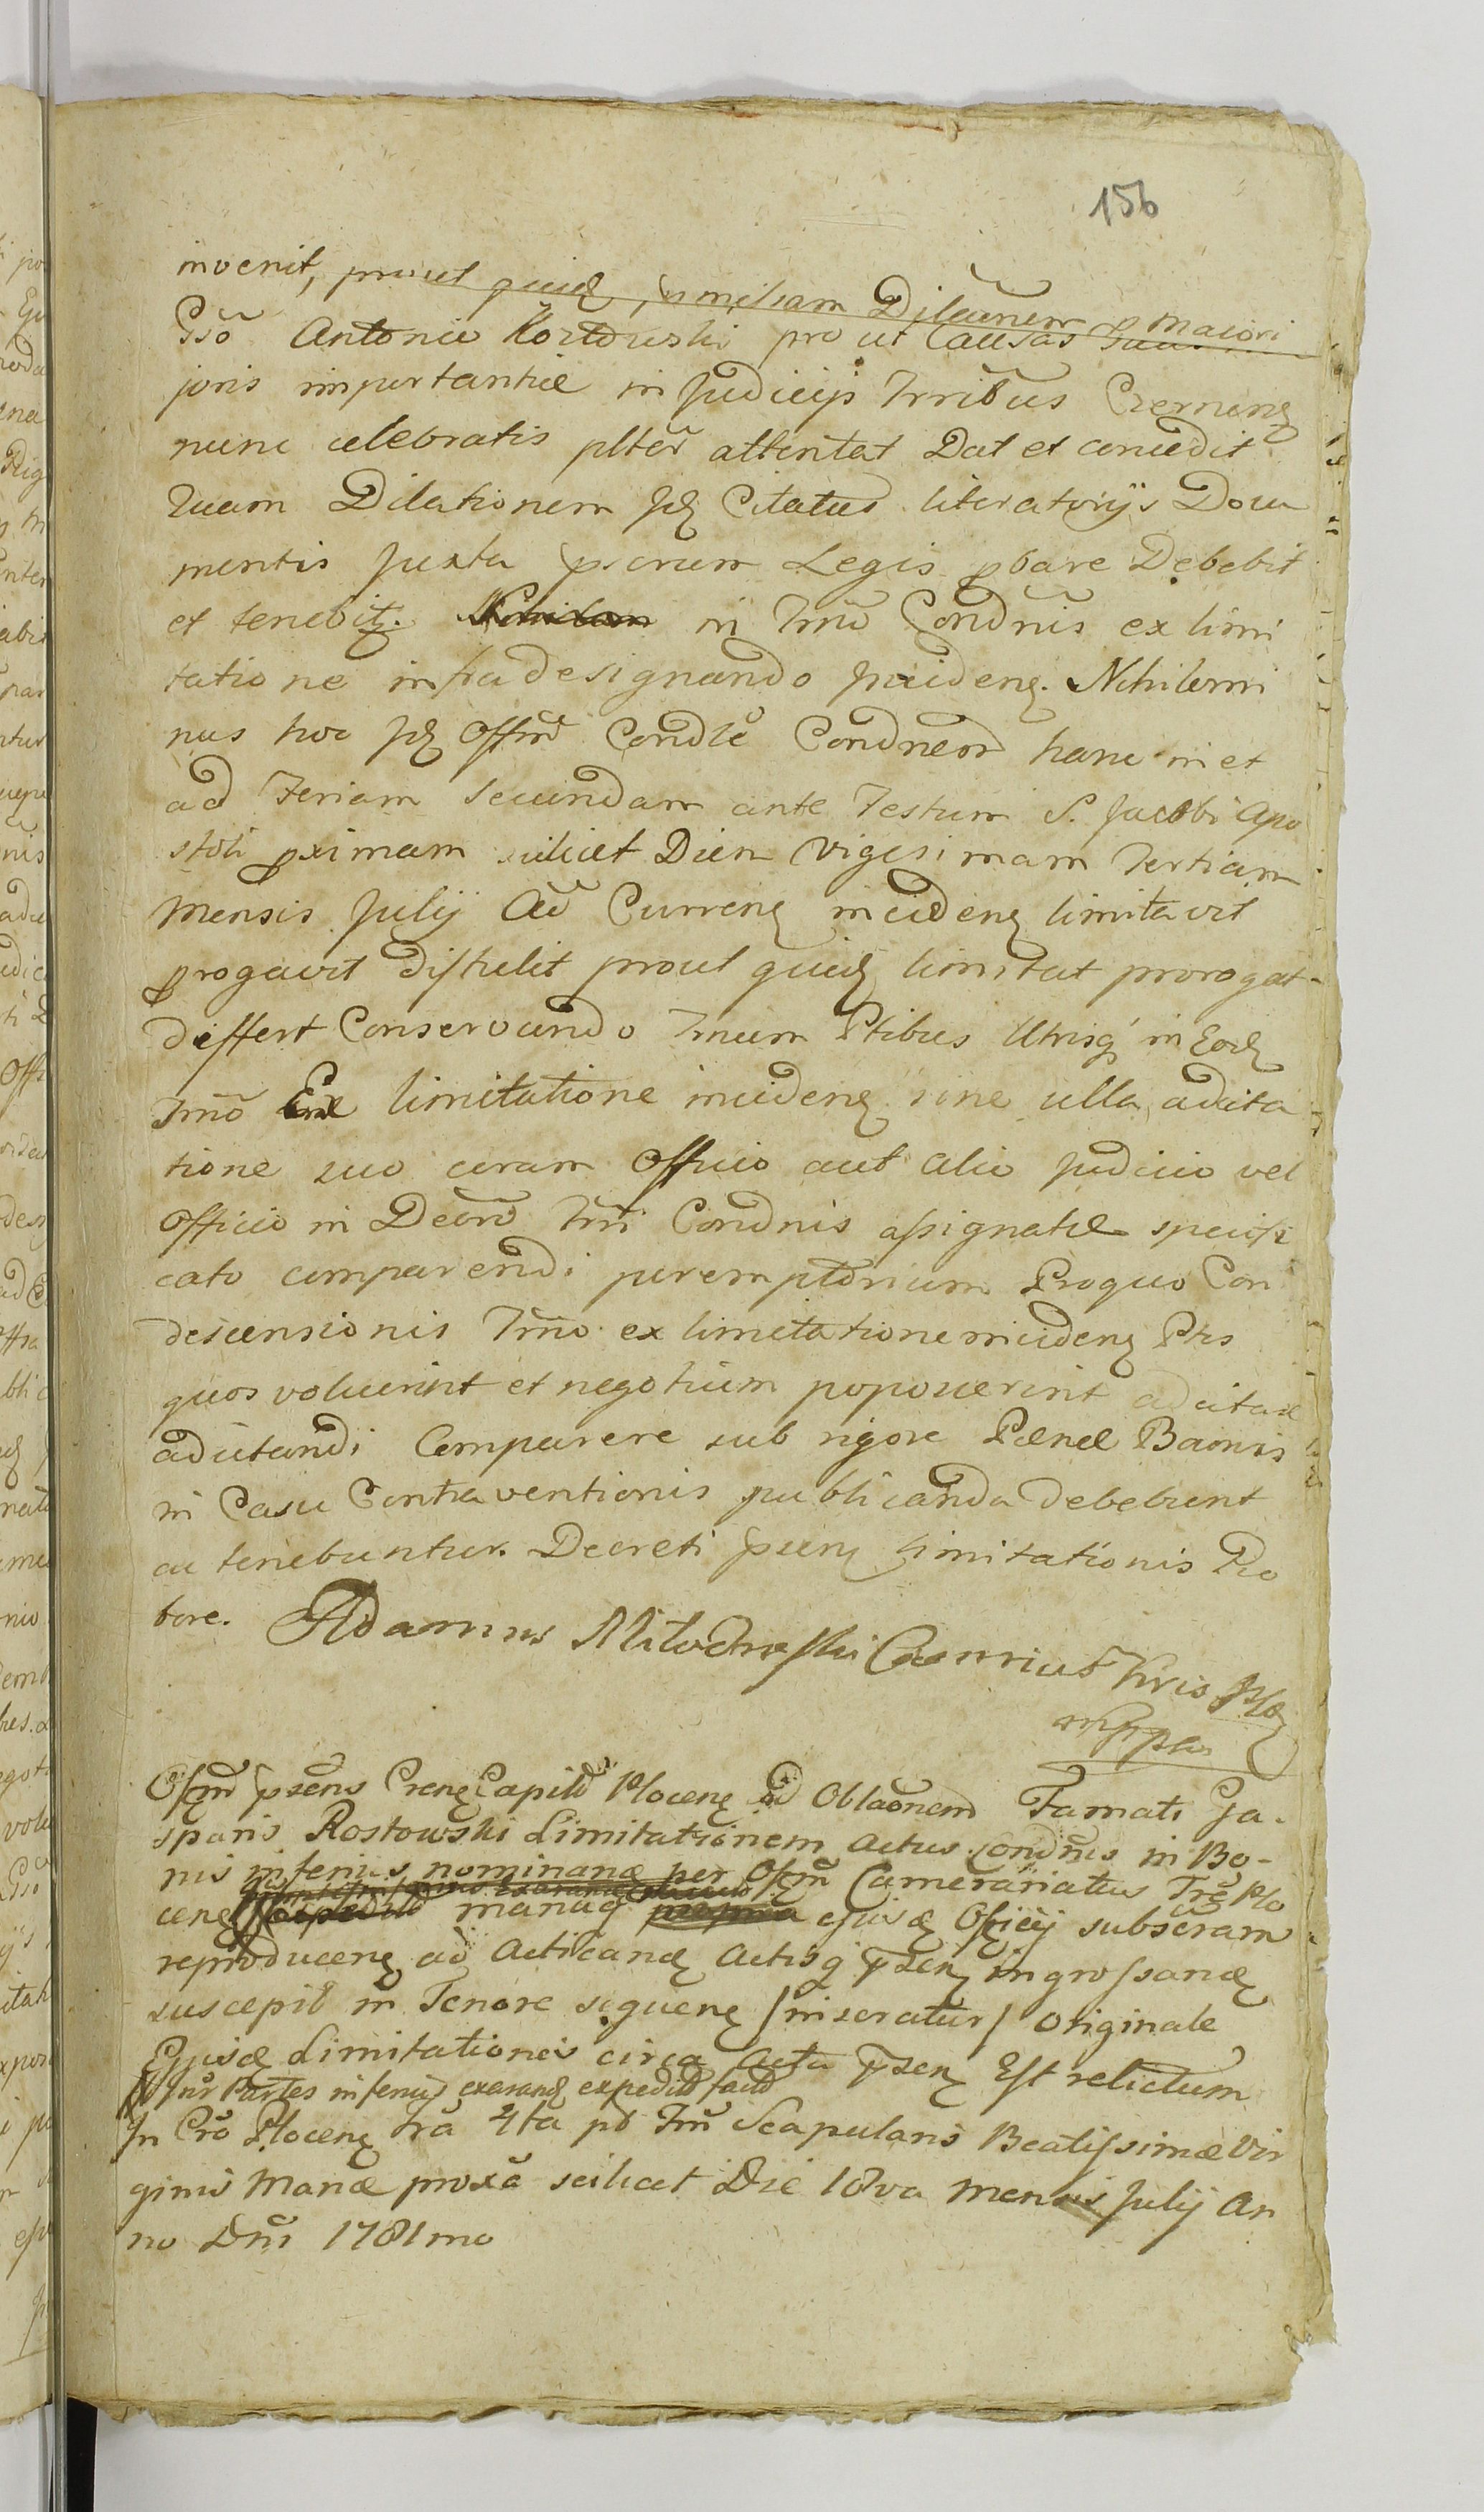 156
invenit, prout quidē, similiam Dilāonem p maiori
Gsō Antonii Kozłowski pro ut Causas suas
joris importantiæ in Judicijs Trribus Czernens
nunc celebratis pltēr attentat Dat et concedit
Quam Dilationem Jdē Citatus literatorijs Docu
mentis Juxta pscrium Legis pbare Debebit
et tenebit. in Tmō Condnīs ex limi
tatione infradesignando inciden. Nihilomi
nus hoc Jdē Offm̄ Condlē Condnem hanc in et
ad Feriam Secundam ante Festum S. Jacobi Apo
stoli pximam scilicet Diem Vigesimam Tertiam
Mensis Julij Ad Curren inciden limitavit
progavit distulit prout quidē limitat prorogat
differt Conservando Tmum Ptibus Utrisq in Eodē
Tmō Ex limitatione inciden sine ulla adcita
tione suo coram Officio aut alio Judicio vel
Officio in Decrō Tmī Condnis assignatæ specifi
cato comparendi peremptorium Proquo Con
descensionis Tmō ex limitatione inciden Ptes
quos voluerint et negotium poposcerint adcitare
adcitandi Comparere sub rigore Pænæ Bannis
in Casu Contraventionis publicanda debebunt
ac tenebuntur. Decreti psen limitationis Ro
bore. Adamus Milochroski Camrius Trris Plo
mppa
Offm̄ psens Cren Capitle Plocen ad Oblaōnem Famati Ga-
sparis Rostowski Limitationem actus Condnis in Bo-
nis inferius nominanē per Offm̄ Camerariatus Trē Plo
cen manuq ejusdē Officij subscram
reproducen ad Acticanē Actisq psen ingrossanē
suscepit in Tenore sequenē /inseratur/ Originale
Ejusdē Limitationis circa Acta psen Est relictum
Intr Partes inferius exaranē expeditē factē
In Crō Plocen Fra 4ta pt Fm̄ Scapularis Beatissimæ Vir
ginis Mariæ proxā scilicet Die 18va Mensis Julij An
no Dnī 1781mo